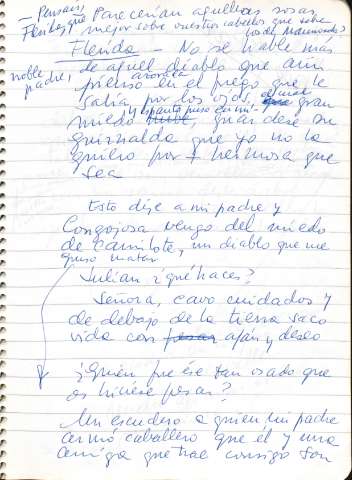 — Pensais,
Flerida, que Parecerían aquellas rosas
mejor sobre vuestros cabellos que sobre
los de Maimonda?
Flerida — No se hable mas
noble
padre, de aquel diablo que aún
pienso en el fuego que le
salía por los ojos, gran
miedo y espanto puso en mi. guardese su
guirnalda que yo no la
quiero por + hermosa que
sea
Esto dije a mi padre y
Congojosa vengo del miedo
de Camilote, un diablo que me
quiso matar
Julian ¿qué haces?
Señora, cavo cuidados y
de debajo de la tierra saco
vida con afán y deseo
¿Quién fue ése tan osado que
os hiciese pesar?
Un escudero a quien mi padre
armó caballero que el y una
amiga que trae consigo son